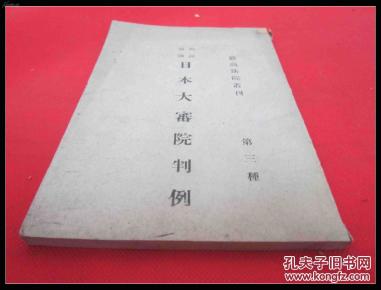 最高法院叢刊
第三種
日本大審院判例
孔夫子旧书网
www.kongfz.com